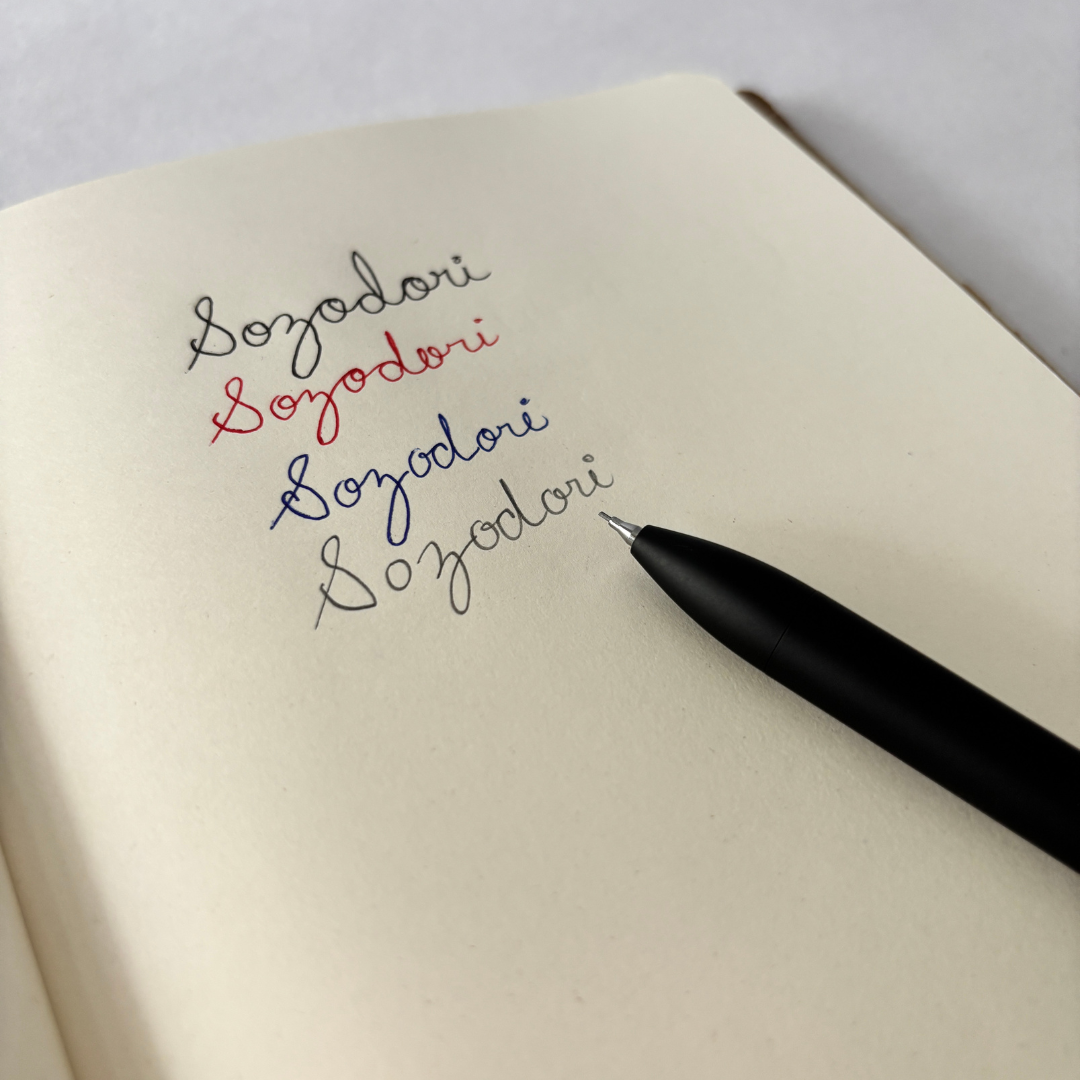 Sozodori
Sozodori
Sozodori
Sozodori